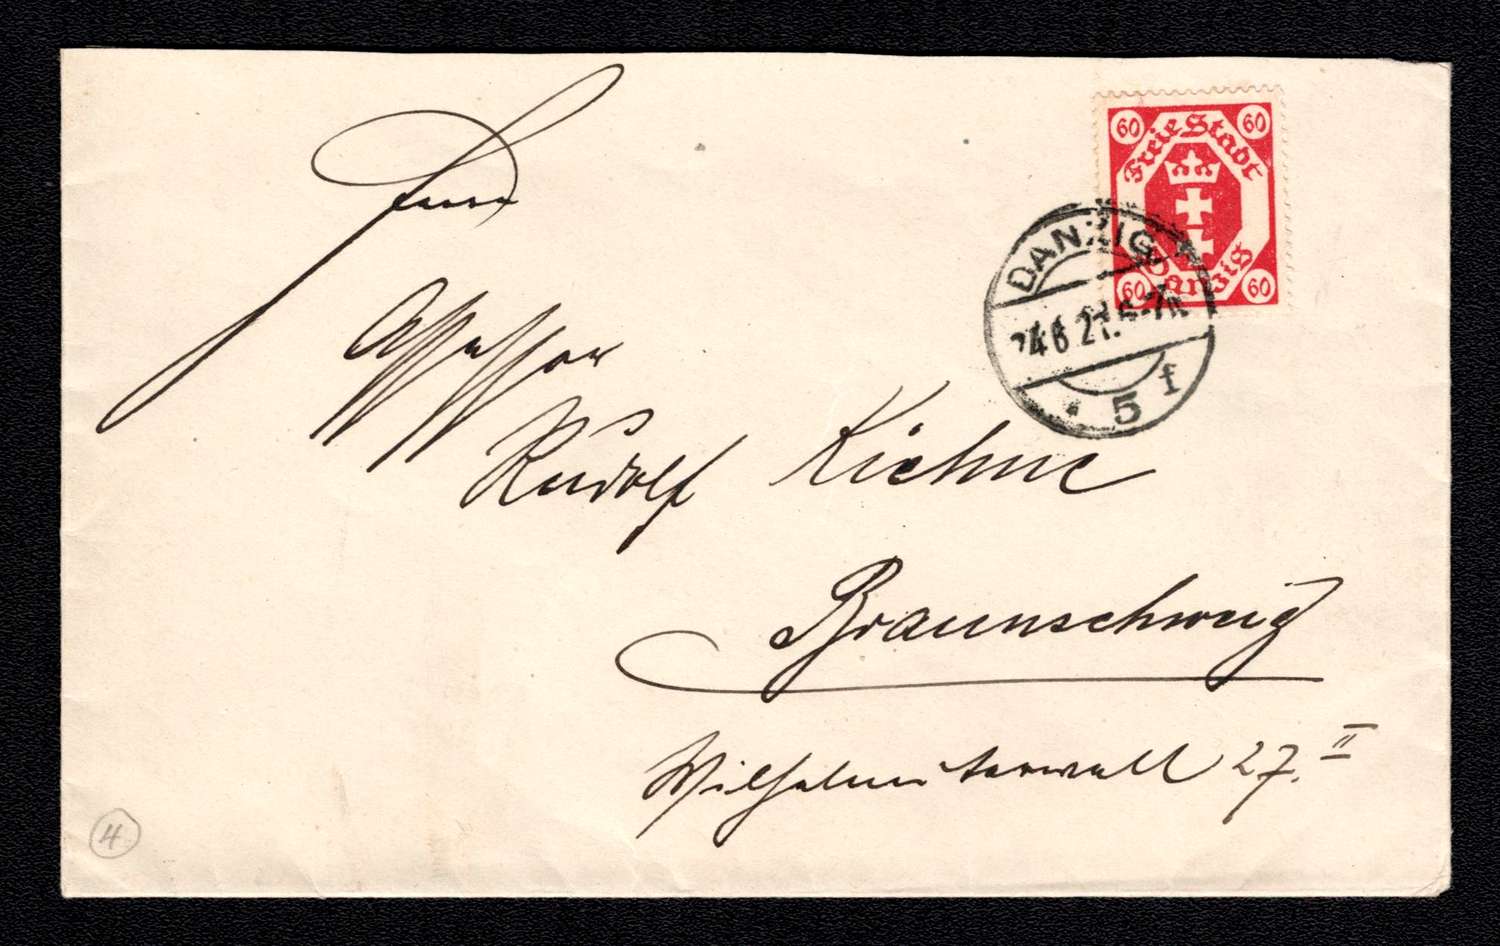 60 60
Freie Stadt
Danzig
60 60
DANZIG
24.6.21.
* 5 f
Herrn
Assessor
Rudolf Kiehne
Braunschweig
Wilhelmitorwall 27. II
4